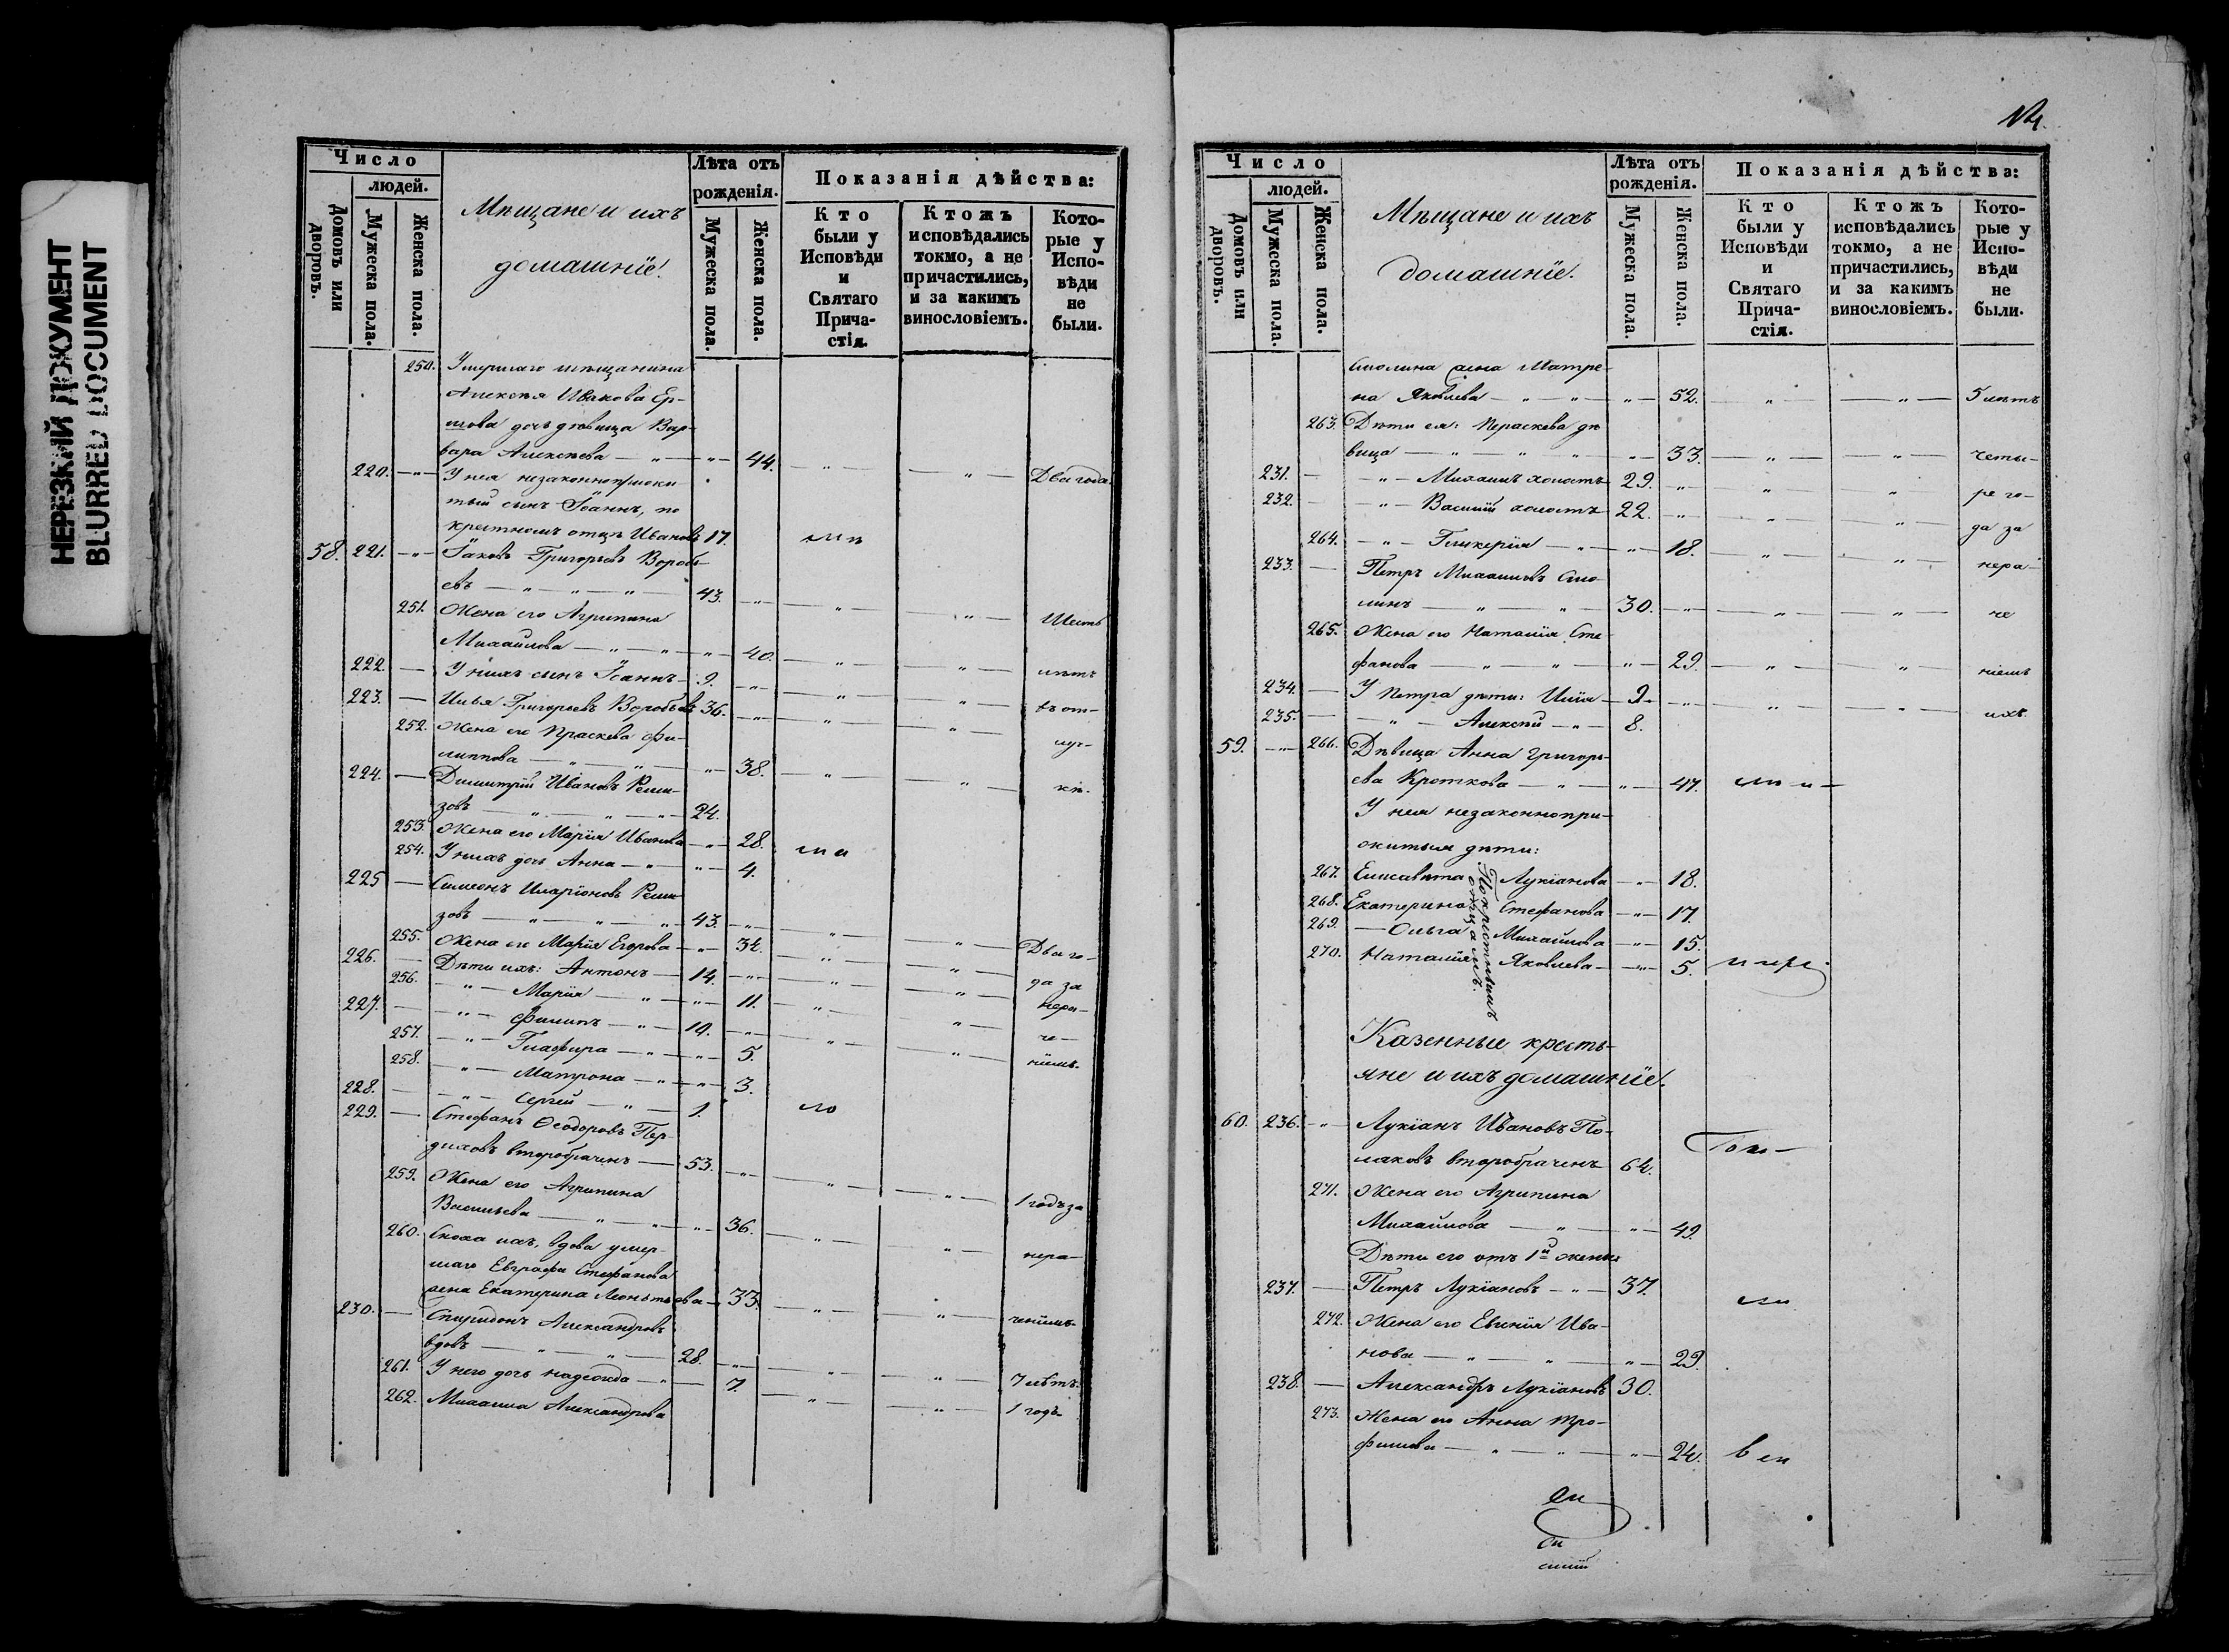 НЕРЕЗКИЙ ДОКУМЕНТ
BLURRED DOCUMENT
Число
людей.
Домовъ или дворовъ.
Мужеска пола.
Женска пола.
Мѣщане и ихъ
домашніе.
Лѣта отъ
рожденія.
Мужеска пола.
Женска пола.
Показанія дѣйства:
Кто
были у
Исповѣди
и
Святаго
Прича-
стія.
Ктожъ
исповѣдались
токмо, а не
причастились,
и за какимъ
винословіемъ.
Кото-
рые у
Испо-
вѣди
не
были.
250. Умершаго мѣщанина
Алексѣя Ивакова Ер-
шова дочь дѣвица Вар-
вара Алексѣева — „ — „ — 44. — „ — „ — Два года.
220. — „ — У нея незаконноприжи
тый сынъ Іоаннъ, по
крестномъ отцѣ Ивановъ 17.
58. 221. — „ — Іаковъ Григорьевъ Воробь-
евъ — „ — „ — „ — 43. — „ — „ — „ — Шесть
251. Жена его Агрипина
Михайлова — „ — „ — „ — 40. — „ — „ — лѣтъ
222. — У нихъ сынъ Іоаннъ — 9. — „ — „ — „ — въ от-
223. — Илья Григорьевъ Воробьевъ 36. — „ — „ — „ — луч-
252. Жена его Праскева Фи-
липпова — „ — „ — „ — 38. — „ — „ — кѣ.
224. — Димитрій Ивановъ Реми-
зовъ — „ — „ — „ — 24.
253. Жена его Марія Иванова — „ — 28.
254. У нихъ дочь Анна — „ — „ — 4.
225 — Симеонъ Иларіоновъ Реми
зовъ — „ — „ — „ — 43. — „ — „ — „ — Два го-
255. Жена его Марія Егорова — „ — 34. — „ — „ — да за
226. — Дѣти ихъ: Антонъ — 14. — „ — „ — „ — нера-
256. — „ — Марія — „ — „ — 11. — „ — „ — че-
227. — „ — Филипъ — „ — 10. — „ — „ — „ — ніемъ.
257. — „ — Глафира — „ — „ — 5.
258. — „ — Матрона — „ — „ — 3.
228. — „ — Сергій — „ — 1.
229. — Стефанъ Ѳеодоровъ Пер-
диковъ второбраченъ — 53. — „ — „ — „ — 1 годъ за
259. Жена его Агрипина
Васильева — „ — „ — „ — 36. — „ — „ — нера-
260. Сноха ихъ, вдова умер-
шаго Евграфа Стефанова
жена Екатерина Леонтьева — 33. — „ — „ — ченіемъ
230. — Спиридонъ Александровъ
вдовъ — „ — „ — 28. — „ — „ — „ — 7 лѣтъ.
261. У него дочь Надежда — „ — 7. — „ — „ — 1 годъ.
262. Михаила Александрова
Число
людей.
Домовъ или дворовъ.
Мужеска пола.
Женска пола.
Мѣщане и ихъ
домашніе.
Лѣта отъ
рожденія.
Мужеска пола.
Женска пола.
Показанія дѣйства:
Кто
были у
Исповѣди
и
Святаго
Прича-
стія.
Ктожъ
исповѣдались
токмо, а не
причастились,
и за какимъ
винословіемъ.
Кото-
рые у
Испо-
вѣди
не
были.
Смолина жена Матре-
на Яковлева — „ — „ — „ — 52. — „ — „ — 5 лѣтъ
263. Дѣти ея: Параскева дѣ
вица — „ — „ — „ — „ — 33. — „ — „ — четы-
231. — „ — Михаилъ холостъ — 29. — „ — „ — „ — ре го-
232. — „ — Василій холостъ 22. — „ — „ — „ — да за
264. — „ — Гликерія — „ — „ — 18. — „ — „ — нера-
233. — Петръ Михаиловъ Смо
линъ — „ — „ — 30. — „ — „ — „ — че
265. Жена его Наталія Сте
фанова — „ — „ — „ — 29. — „ — „ — ніемъ
234. — У Петра дѣти: Илія — 9 — „ — „ — „ — ихъ.
235. — „ — Алексій — „ — 8.
59. — „ — 266. Дѣвица Анна Григорь-
ева Кроткова — „ — „ — 47.
У нея незаконнопри-
житыя дѣти:
По крестнымъ отцамъ.
267. Елисавета Лукіанова — „ — 18.
268. Екатерина Стефанова — „ — 17.
269. — Ольга Михайлова — „ — 15.
270. Наталія Яковлева — „ — 5.
Казенные кресть-
яне и ихъ домашніе.
60. 236. — „ — Лукіанъ Ивановъ По-
ляковъ второбраченъ 64.
271. Жена его Агрипина
Михайлова — „ — „ — 49.
Дѣти его отъ 1й жены
237. — Петръ Лукіановъ — „ — 37.
272. Жена его Евгенія Ива-
нова — „ — „ — „ — 29.
238. — Александръ Лукіановъ 30.
273. Жена его Анна Тро-
фимова — „ — „ — „ — 24.